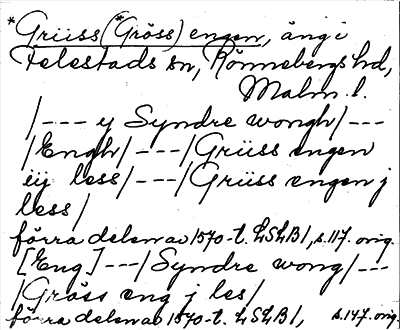 *Grüss(*Gröss)engen, äng i
Felestads sn, Rönnebergs hd,
Malm. l.
/--- y Syndre wongh/---
/Engh/---/Grüss engen
iij less/---/Grüss engen j
less/
förra delen av 1570-t. LSLB/, s. 117. orig.
[Eng]---/Syndre wong/---
/Gröss eng j les/
förra delen av 1570-t. LSLB/, s. 147. orig.